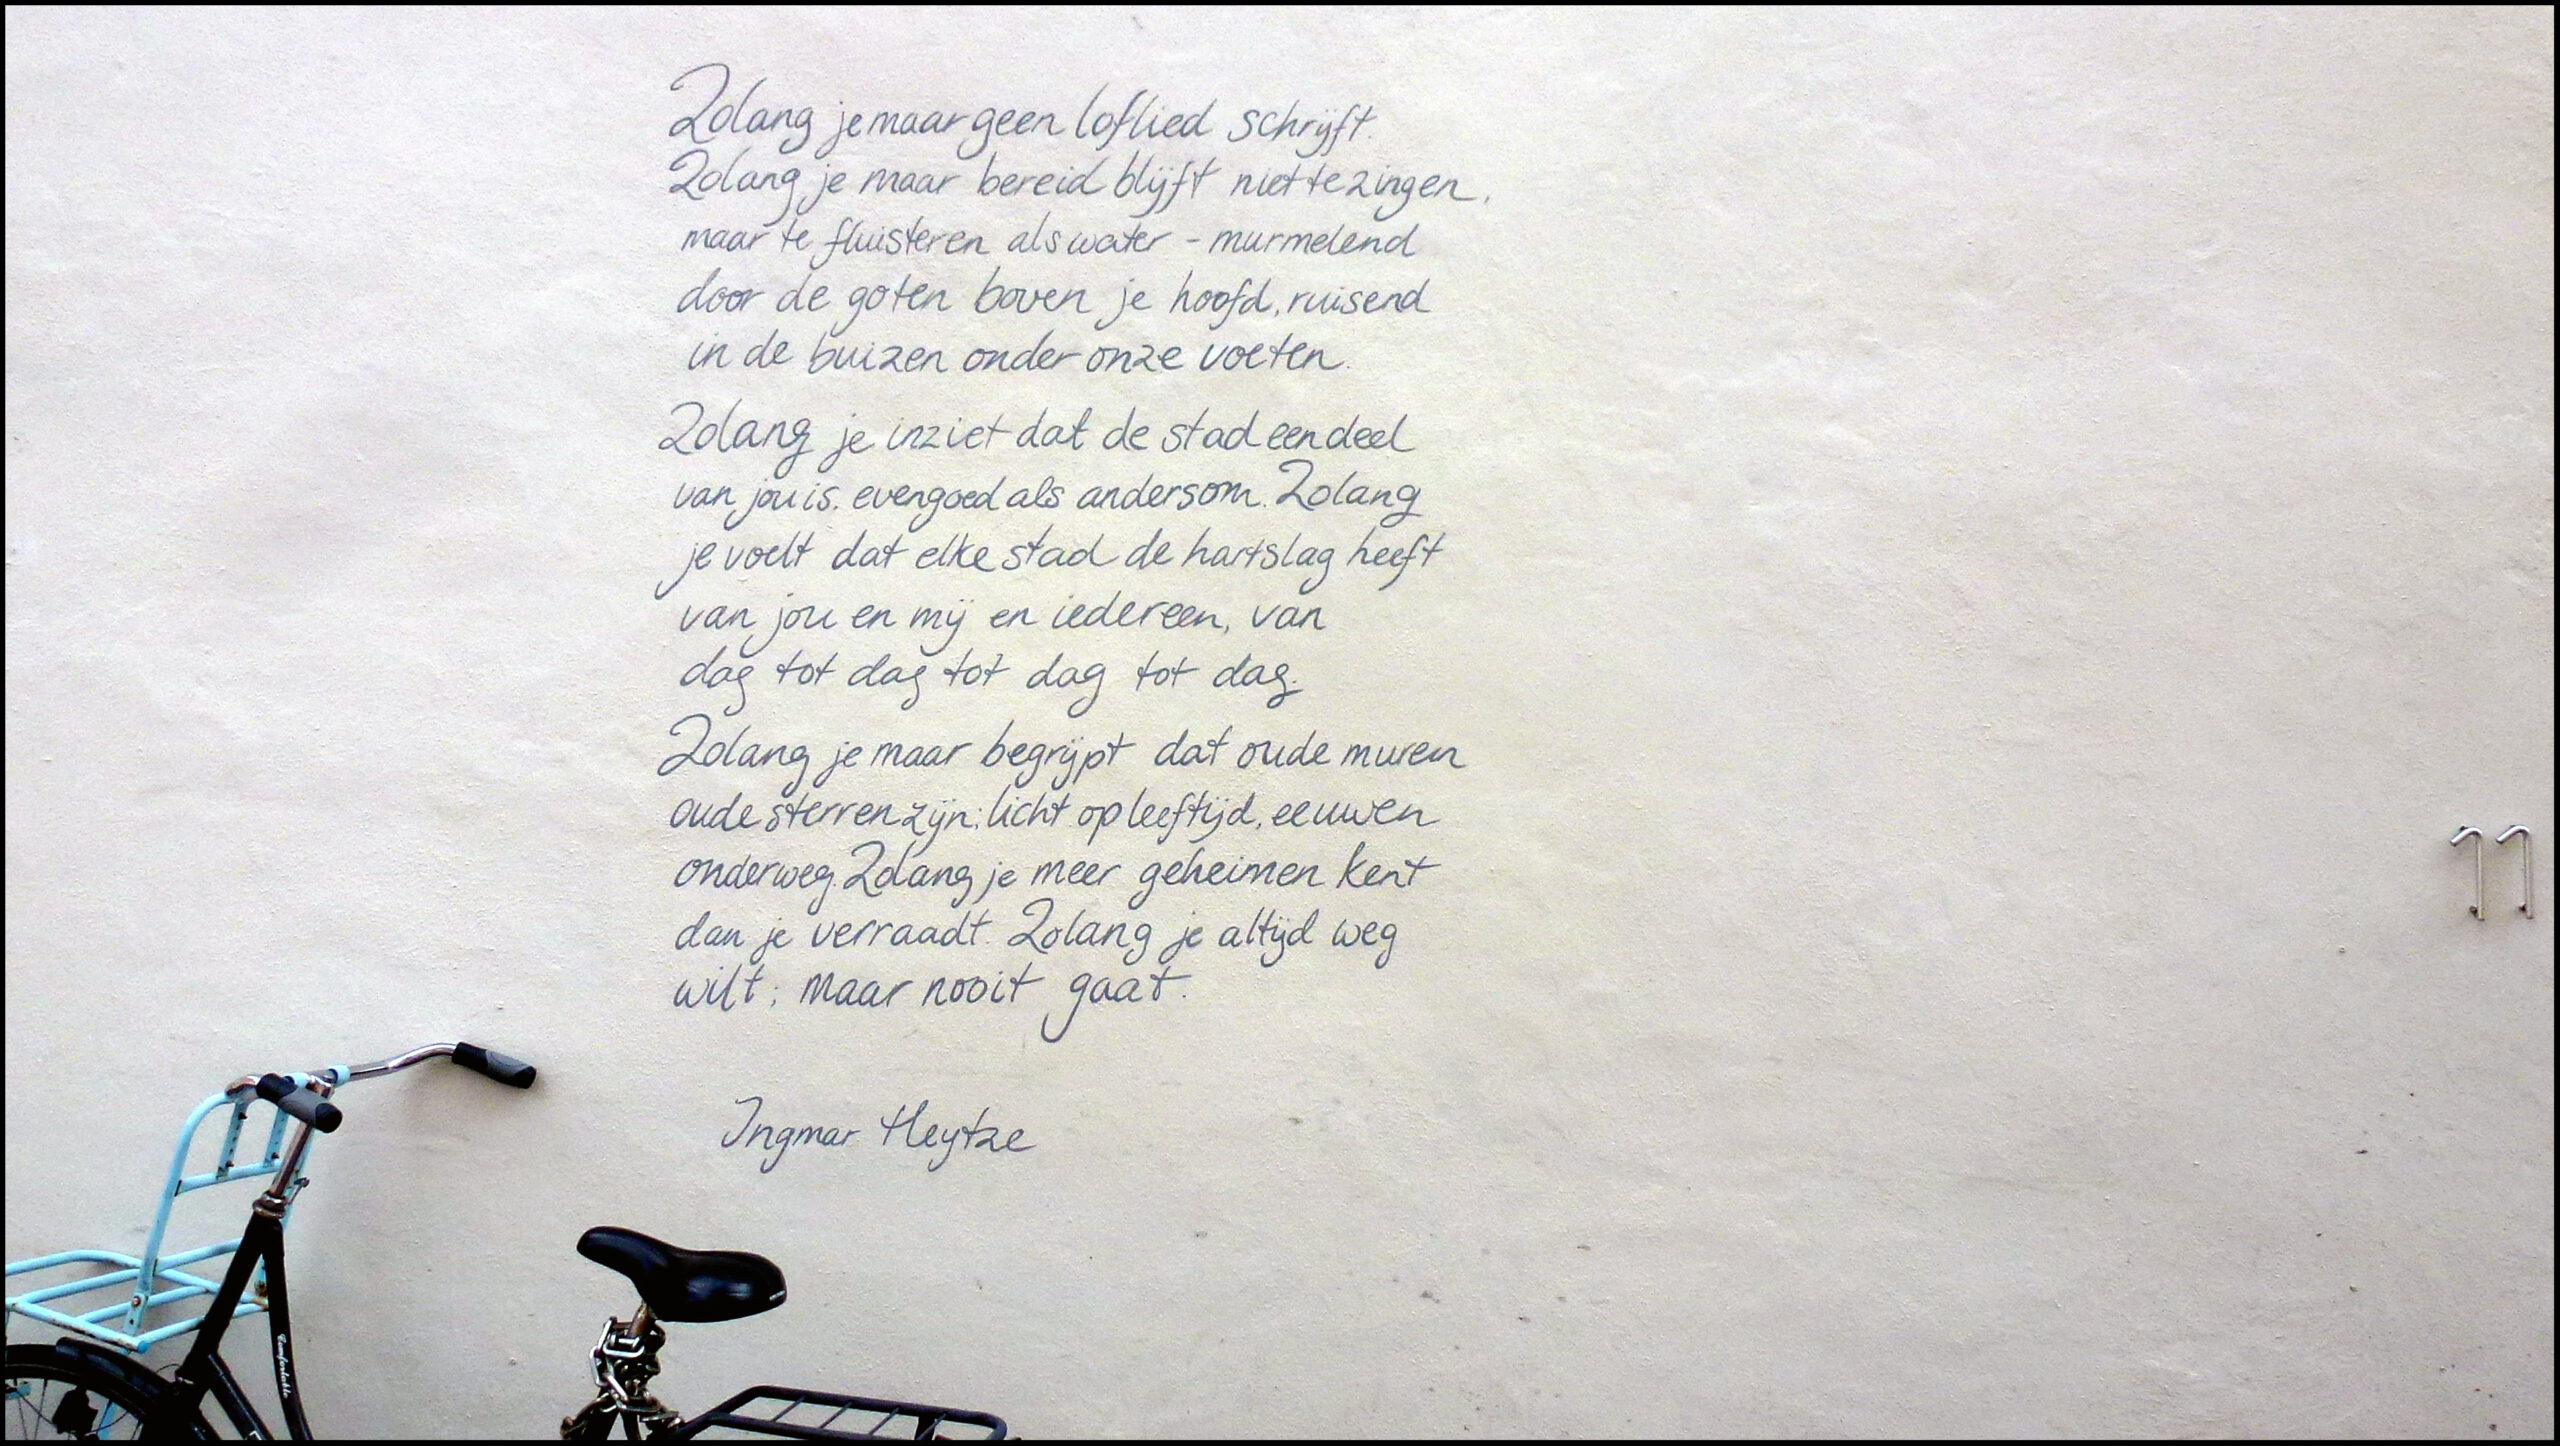 Zolang je maar geen loflied schrijft.
Zolang je maar bereid blijft niet te zingen,
maar te fluisteren als water - murmelend
door de goten boven je hoofd, ruisend
in de buizen onder onze voeten.
Zolang je inziet dat de stad een deel
van jou is, evengoed als andersom. Zolang
je voelt dat elke stad de hartslag heeft
van jou en mij en iedereen, van
dag tot dag tot dag tot dag.
Zolang je maar begrijpt dat oude muren
oude sterren zijn; licht op leeftijd, eeuwen
onderweg. Zolang je meer geheimen kent
dan je verraadt. Zolang je altijd weg
wilt; maar nooit gaat.
Ingmar Heytze
11
Comfortable